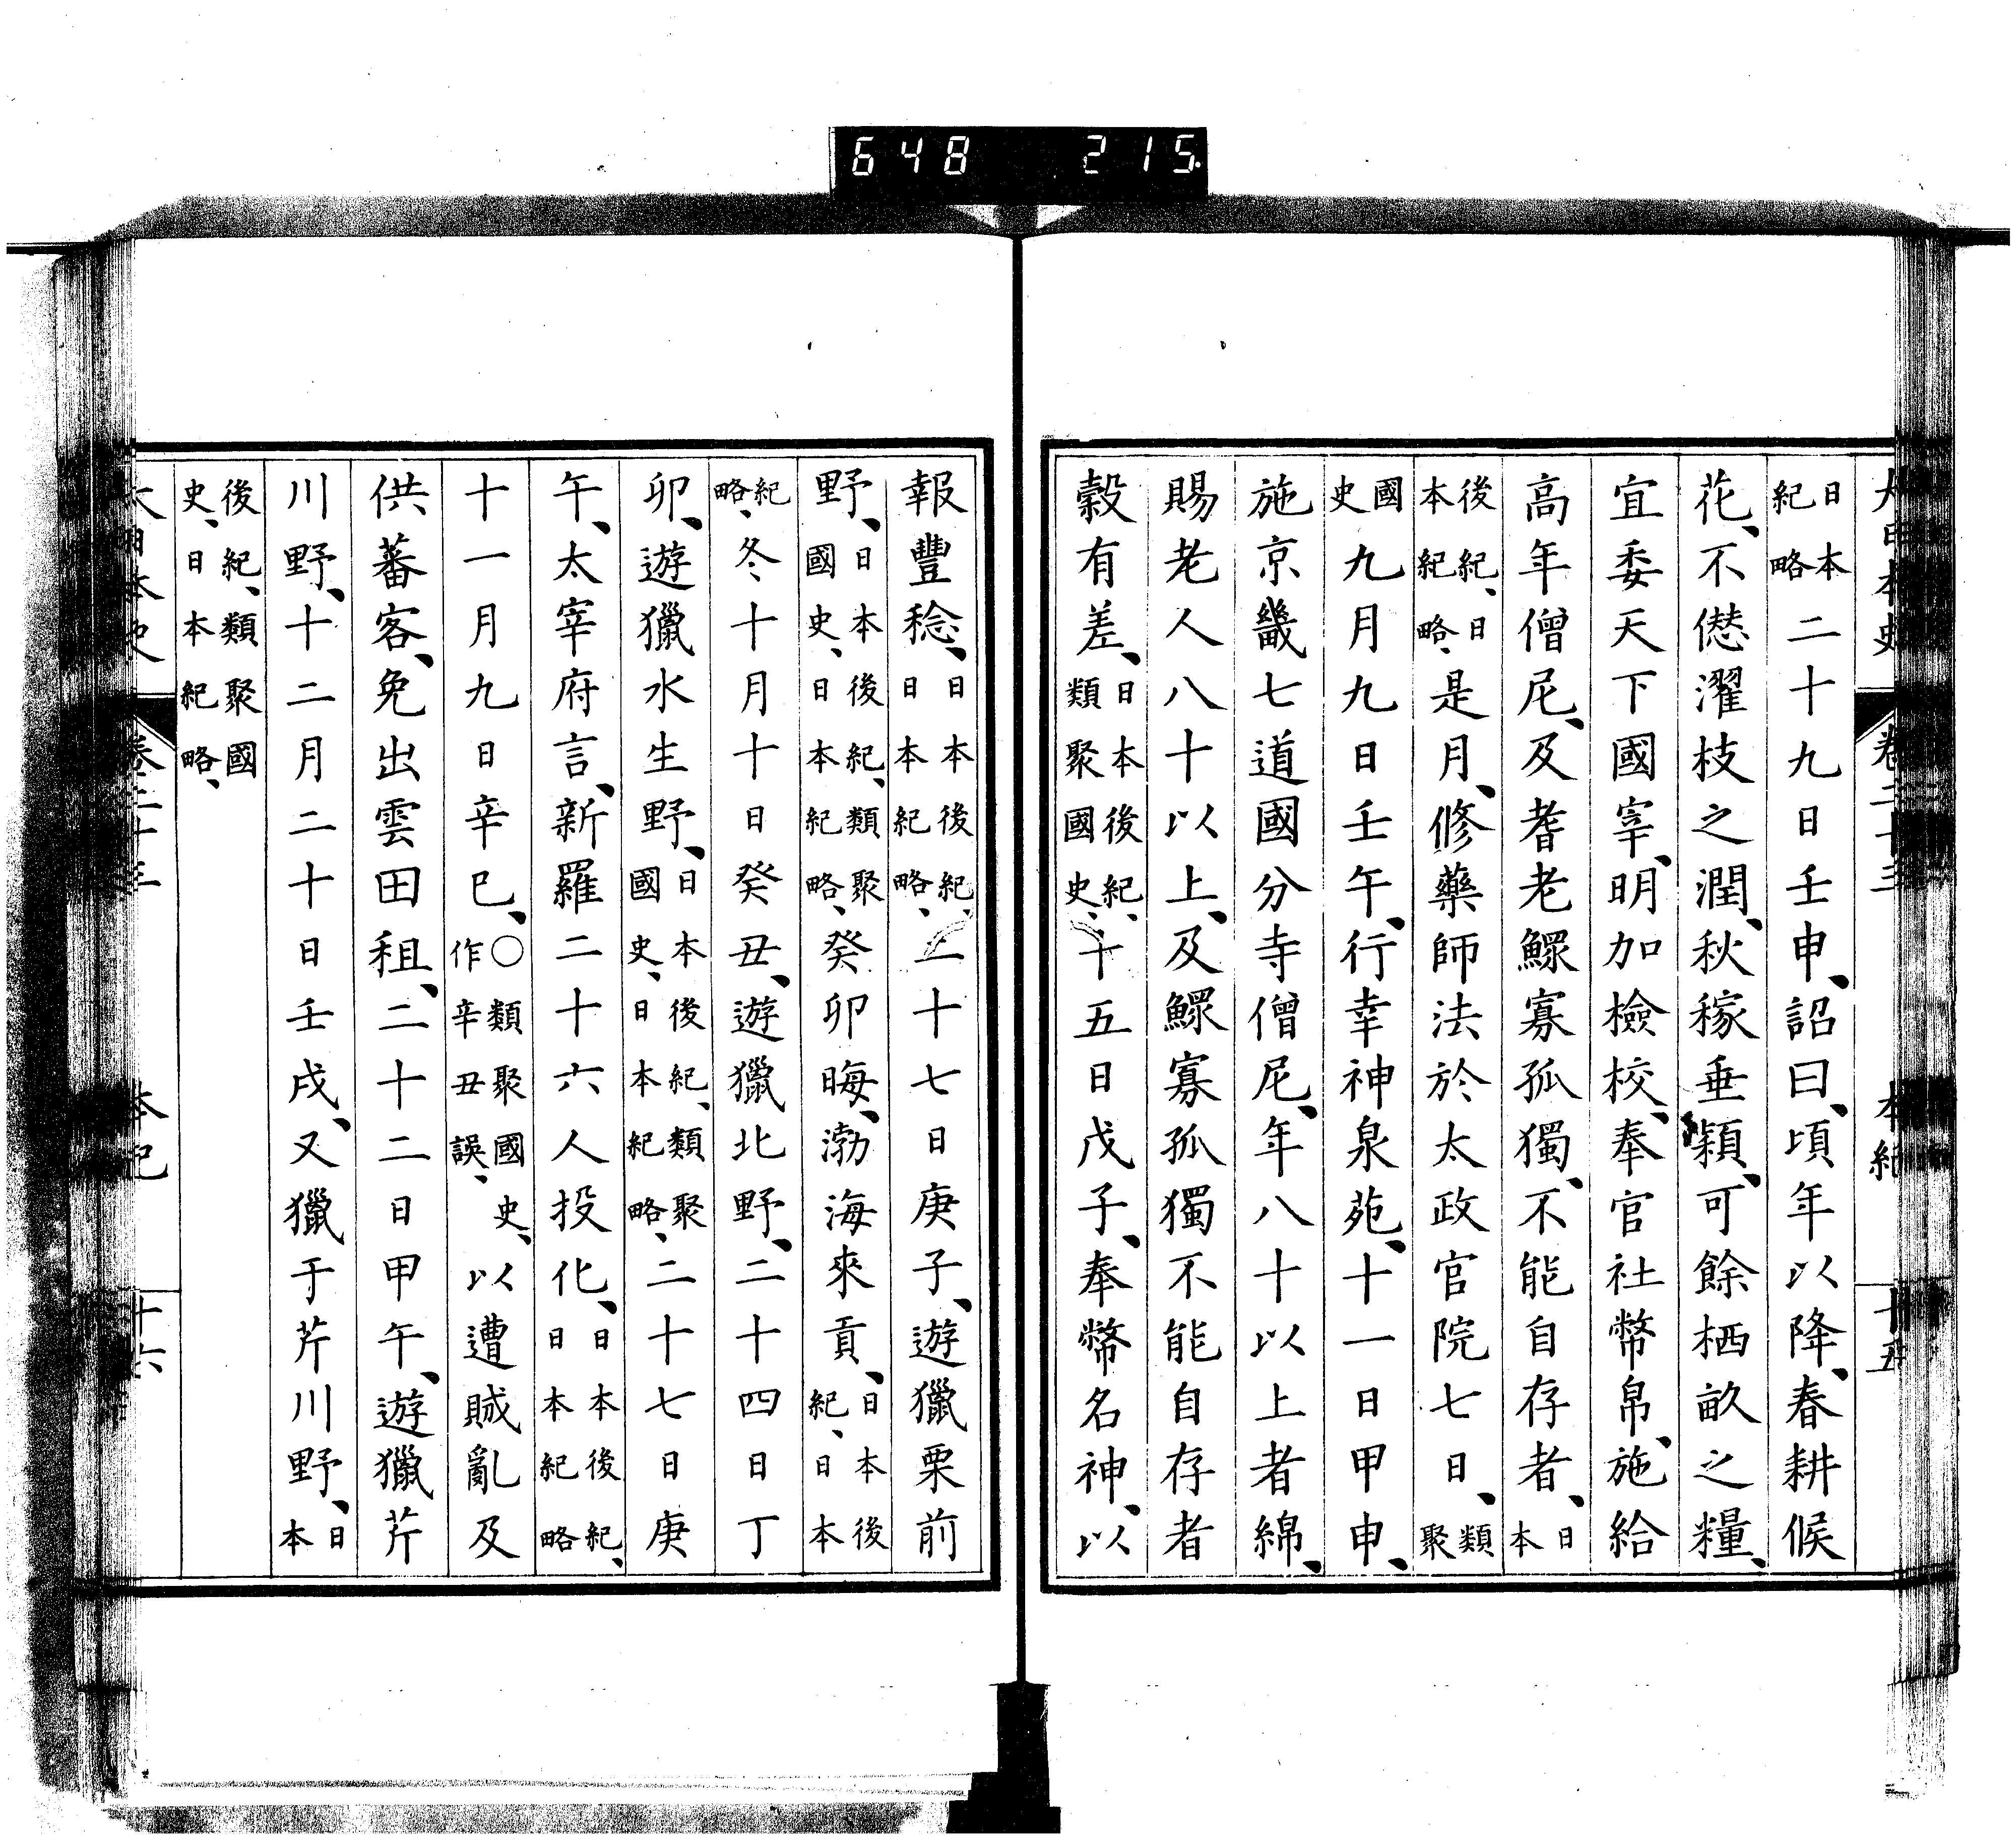 648 215
大日本史 卷二十三 本紀 十五
日本紀略二十九日壬申、詔曰、頃年以降、春耕候
花、不愆濯枝之潤、秋稼垂穎、可餘栖畝之糧、
宜委天下國宰、明加檢校、奉官社幣帛、施給
高年僧尼、及耆老鰥寡孤獨、不能自存者、日本
後紀、日本紀略、是月、修藥師法於太政官院七日、類聚
國史九月九日壬午、行幸神泉苑、十一日甲申、
施京畿七道國分寺僧尼、年八十以上者綿、
賜老人八十以上、及鰥寡孤獨不能自存者
穀有差、日本後紀、類聚國史、十五日戊子、奉幣名神、以
報豐稔、日本後紀、日本紀略、二十七日庚子、遊獵栗前
野、日本後紀、類聚國史、日本紀略、癸卯晦、渤海來貢、日本後紀、日本
紀略、冬十月十日癸丑、遊獵北野、二十四日丁
卯、遊獵水生野、日本後紀、類聚國史、日本紀略、二十七日庚
午、太宰府言、新羅二十六人投化、日本後紀、日本紀略
十一月九日辛巳、○類聚國史、作辛丑誤、以遭賊亂及
供蕃客、免出雲田租、二十二日甲午、遊獵芹
川野、十二月二十日壬戌、又獵于芹川野、日本
後紀、類聚國史、日本紀略、
大日本史 卷二十三 本紀 十六